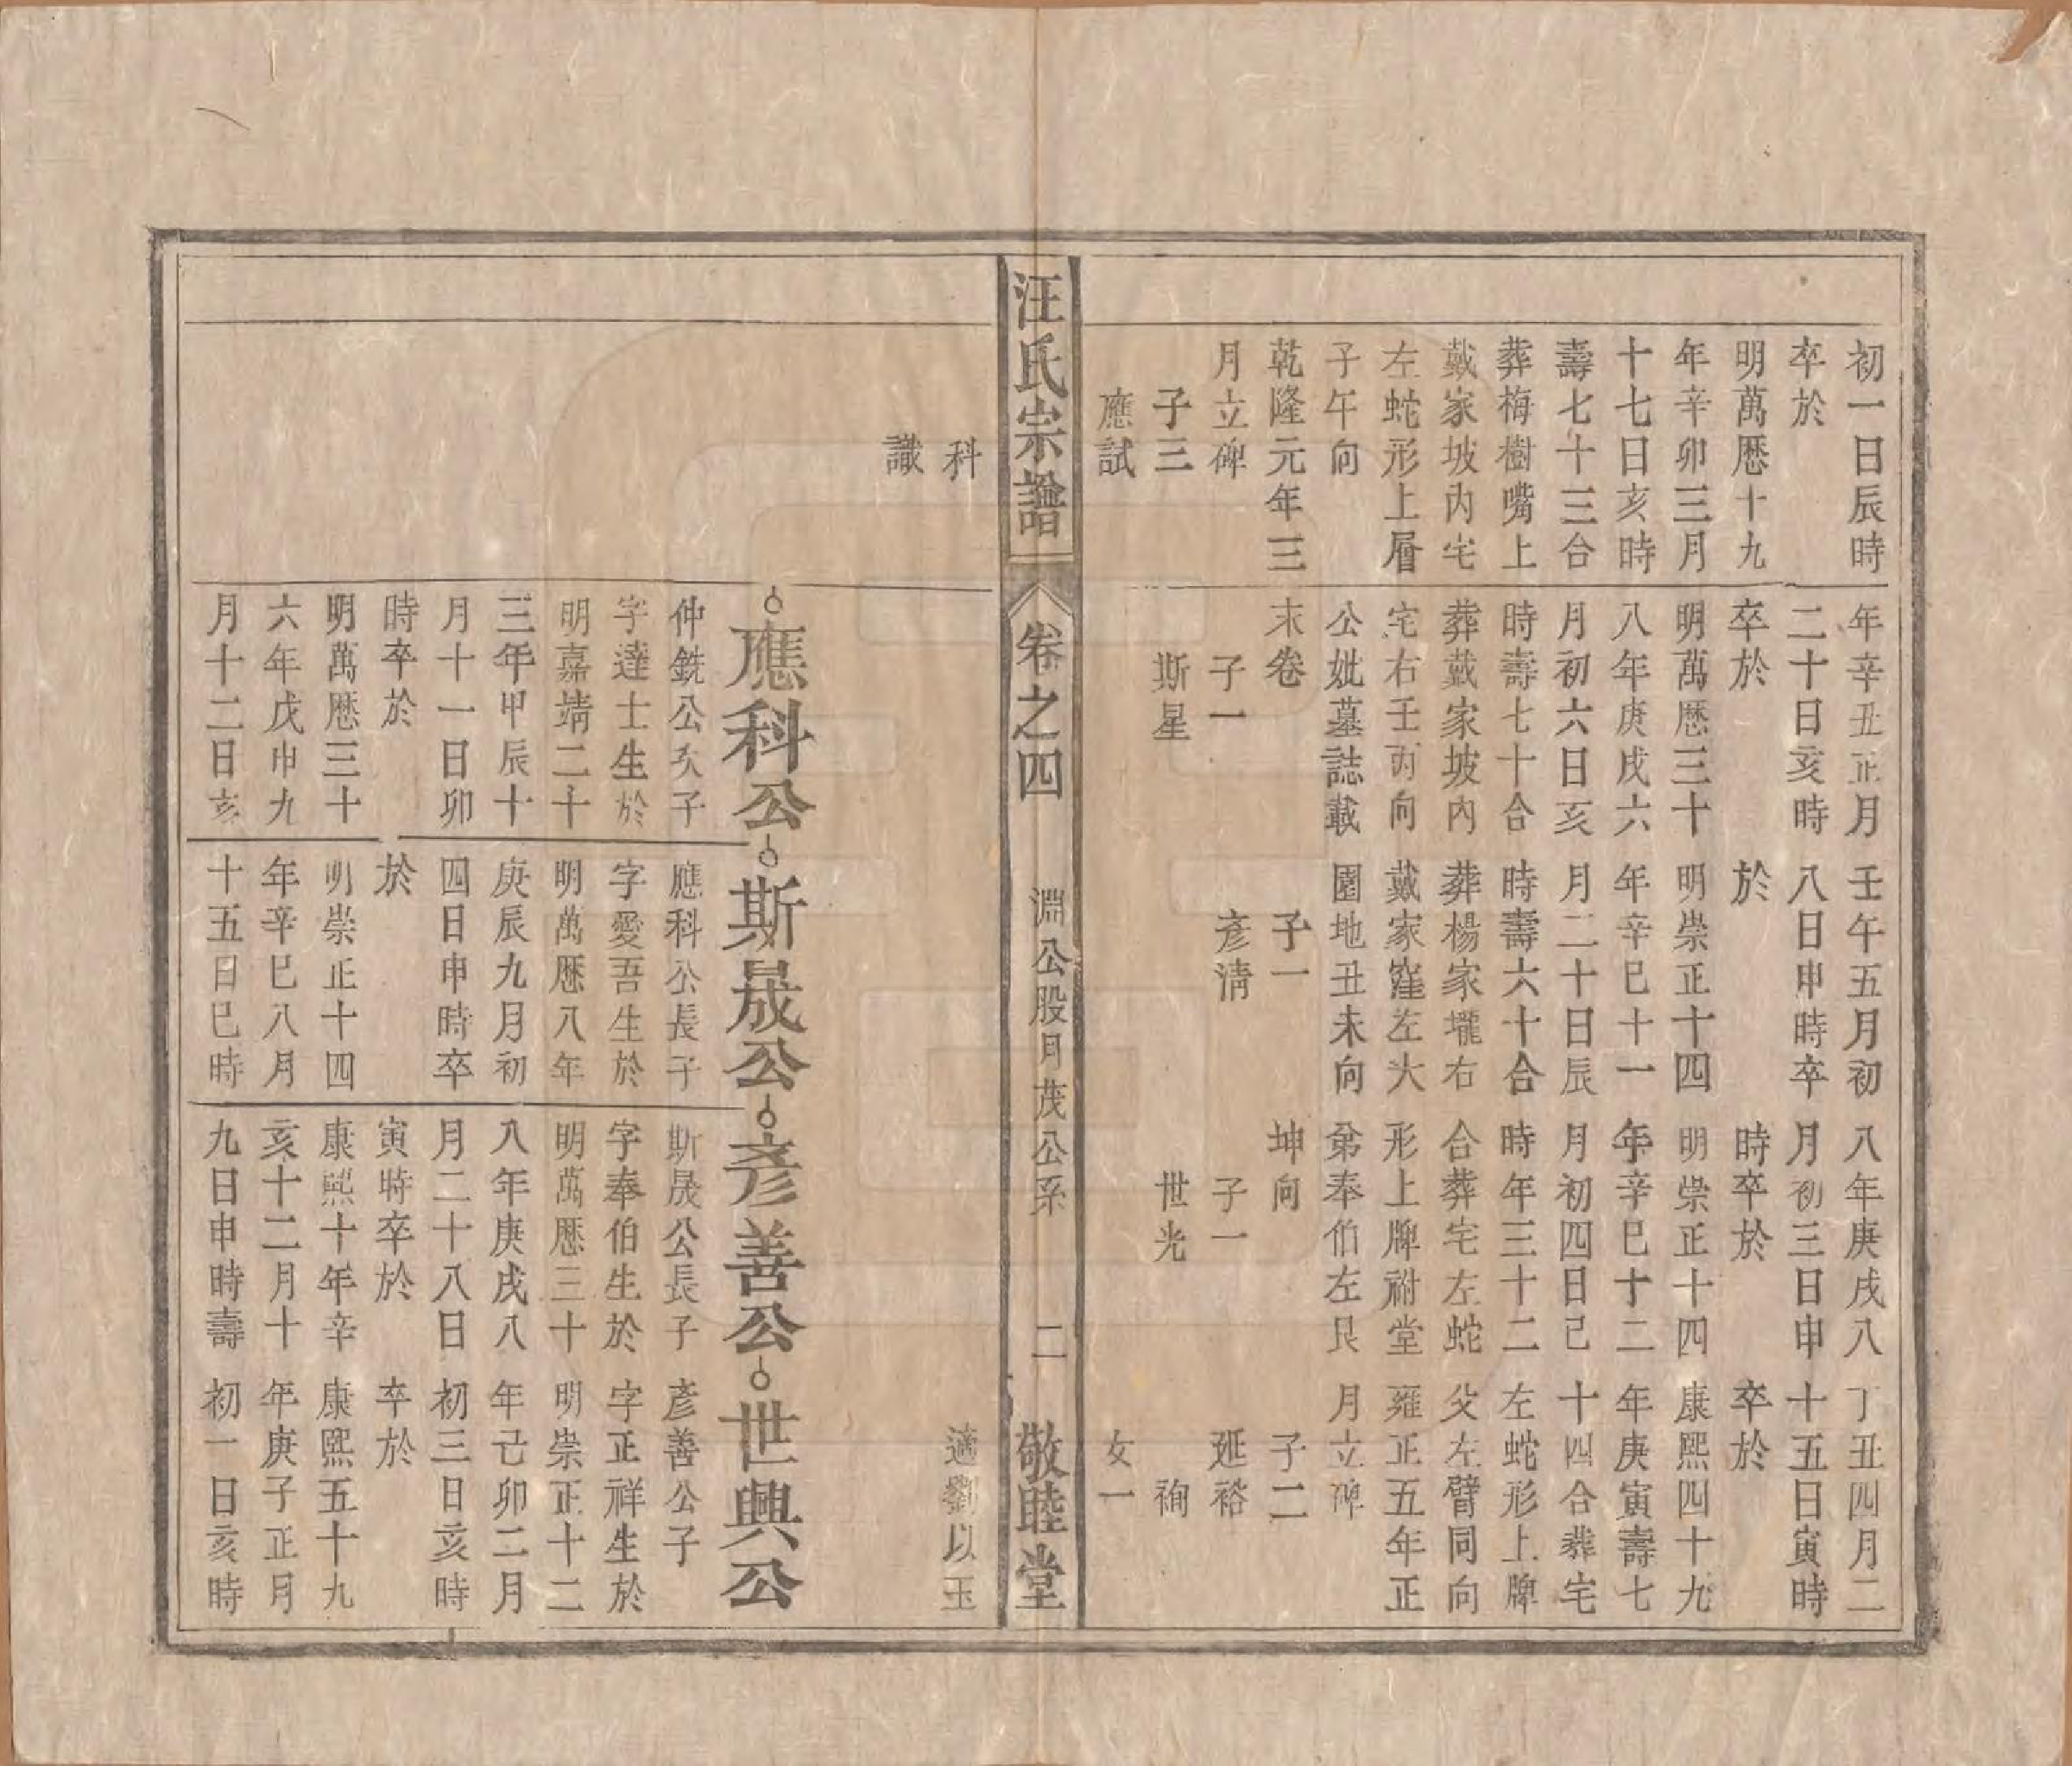 初一日辰時
卒於
明萬厯十九
年辛卯三月
十七日亥時
壽七十三合
葬梅樹嘴上
戴家坡內宅
左蛇形上層
子午向
乾隆元年三
月立碑
子三
應試
年辛丑正月
二十日亥時
卒於
明萬厯三十
八年庚戌六
月初六日亥
時壽七十合
葬戴家坡內
宅右壬丙向
公妣墓誌載
末卷
子一
斯星
壬午五月初
八日申時卒
於
明崇正十四
年辛巳十一
月二十日辰
時壽六十合
葬楊家壠右
戴家窪左大
園地丑未向
子一
彥清
八年庚戌八
月初三日申
時卒於
明崇正十四
年辛巳十二
月初四日己
時年三十二
合葬宅左蛇
形上牌祔堂
弟奉伯左艮
坤向
子一
世光
丁丑四月二
十五日寅時
卒於
康熙四十九
年庚寅壽七
十四合葬宅
左蛇形上牌
父左臂同向
雍正五年正
月立碑
子二
延裕
祹
女一
汪氏宗譜
卷之四
淵公股月茂公系
二
敬睦堂
科
識
適劉以玉
應科公
仲銑公次子
字達士生於
明嘉靖二十
三年甲辰十
月十一日卯
時卒於
明萬厯三十
六年戊申九
月十二日亥
斯晟公
應科公長子
字愛吾生於
明萬厯八年
庚辰九月初
四日申時卒
於
明崇正十四
年辛巳八月
十五日巳時
彥善公
斯晟公長子
字奉伯生於
明萬厯三十
八年庚戌八
月二十八日
寅時卒於
康熙十年辛
亥十二月十
九日申時壽
世興公
彥善公子
字正祥生於
明崇正十二
年己卯二月
初三日亥時
卒於
康熙五十九
年庚子正月
初一日亥時